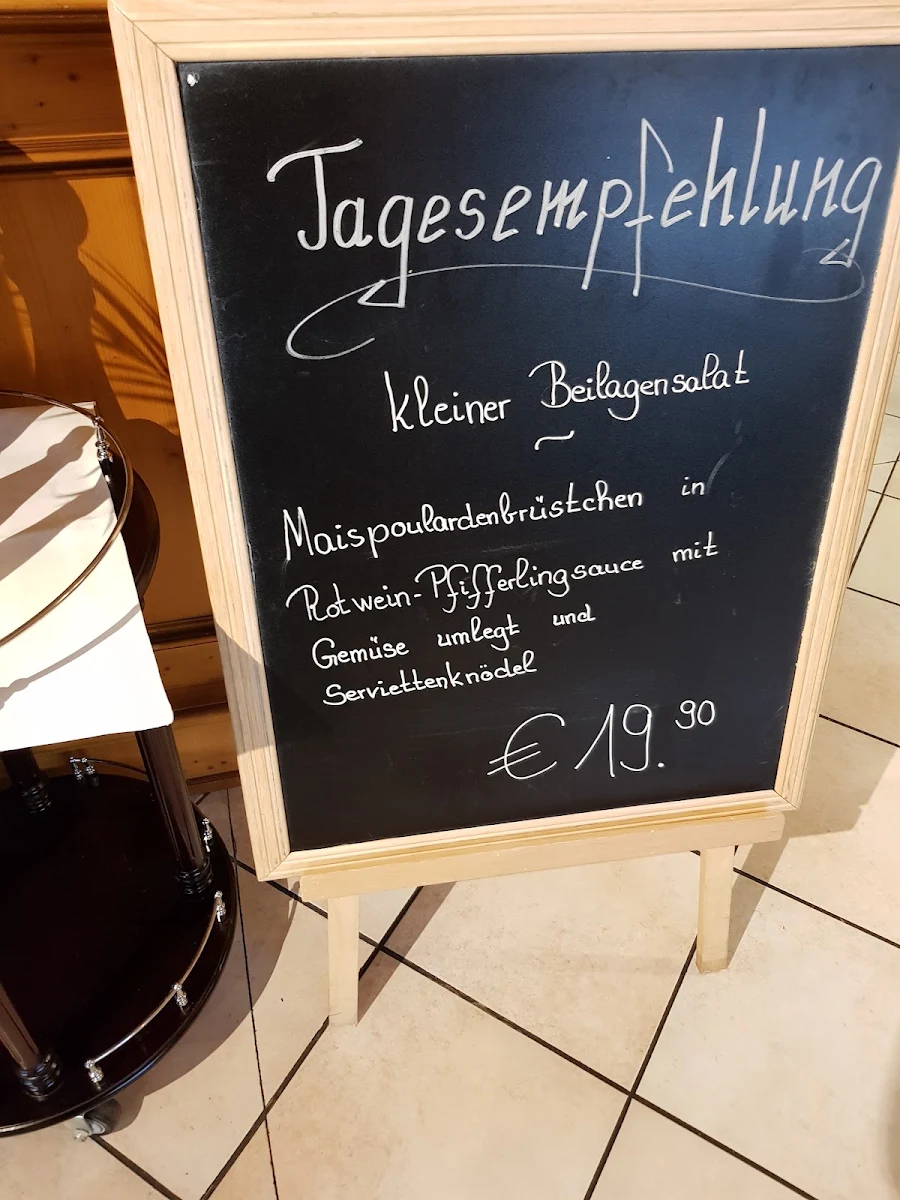 Tagesempfehlung
kleiner Beilagensalat
~
Maispoulardenbrüstchen in
Rotwein-Pfifferlingsauce mit
Gemüse umlegt und
Serviettenknödel
€ 19.90